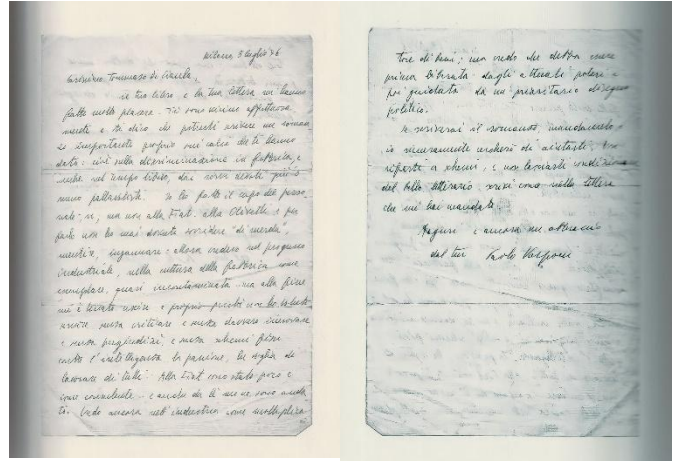 Milano 3 luglio 76
Carissimo Tommaso Di Ciaula,
il tuo libro e la tua lettera mi hanno
fatto molto piacere. Ti sono vicino affettuosa
mente e ti dico che potresti scrivere un roman
zo importante proprio sui calci che ti hanno
dato: cioè sulla discriminazione in fabbrica, e
anche nel tempo libero, dai corsi serali più o
meno
Io ho fatto il capo del perso
nale, sì, ma non alla Fiat: alla Olivetti e per
farlo non ho mai dovuto sorridere "di merda",
mentire, ingannare: allora credevo nel progresso
industriale, nella cultura della fabbrica come
esemplare, quasi incontaminata ma alla fine
mi è toccato uscire e proprio perché non ho saputo
servire senza criticare e senza davvero innovare
e senza pregiudizi e senza schemi fissi
contro l'intelligenza la passione, la voglia di
lavorare di tutti. Alla Fiat sono stato poco e
come consulente - e anche da lì me ne sono andato
Credo ancora nell'industria come moltiplica
tore di beni; ma credo che debba essere
prima liberata dagli attuali poteri e
poi guidata da un prioritario disegno
politico.
Se scriverai il romanzo, mandamelo:
io sicuramente cercherò di aiutarti; non
rifarti a schemi, e non lasciarti condizionare
dal bello letterario, scrivi come nella lettera
che mi hai mandato.
Auguri e ancora un abbraccio
dal tuo Paolo Volponi